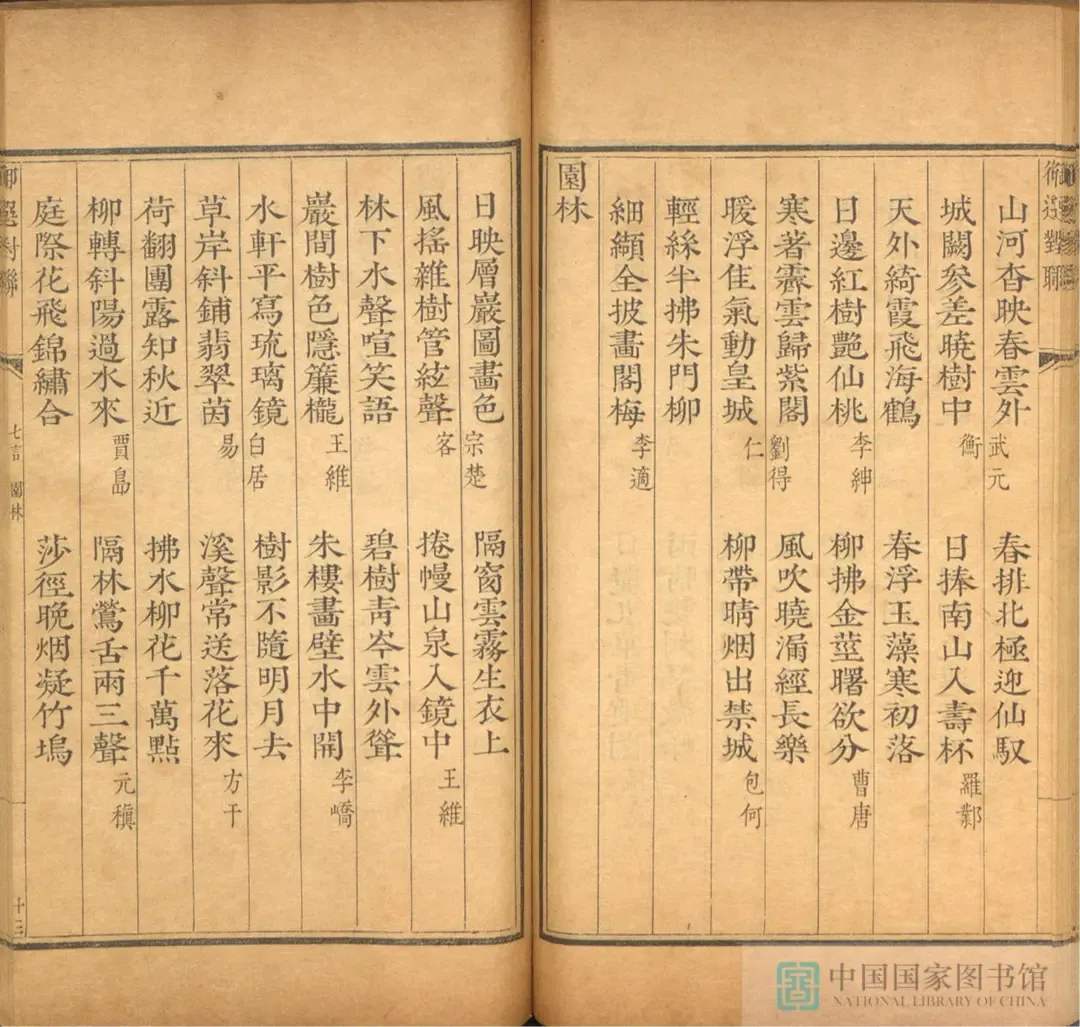 山河杳映春雲外 武元 春排北極迎仙馭
城闕參差曉樹中 衡 日捧南山入壽杯 羅鄴
天外綺霞飛海鶴 春浮玉藻寒初落
日邊紅樹艷仙桃 李紳 柳拂金莖曙欲分 曹唐
寒著霽雲歸紫閣 劉得 風吹曉漏經長樂
暖浮佳氣動皇城 仁 柳帶晴烟出禁城 包何
輕絲半拂朱門柳
細纈全披畫閣梅 李適
園林
日映層巖圖畫色 宗楚 隔窗雲霧生衣上
風搖雜樹管絃聲 客 捲幔山泉入鏡中 王維
林下水聲喧笑語 碧樹青岑雲外聳
巖間樹色隱簾櫳 王維 朱樓畫壁水中開 李嶠
水軒平寫琉璃鏡 白居 樹影不隨明月去
草岸斜鋪翡翠茵 易 溪聲常送落花來 方干
荷翻團露知秋近 拂水柳花千萬點
柳轉斜陽過水來 賈島 隔林鶯舌兩三聲 元稹
庭際花飛錦繡合 莎徑晚烟凝竹塢
七言 園林 十三
中国国家图书馆
NATIONAL LIBRARY OF CHINA